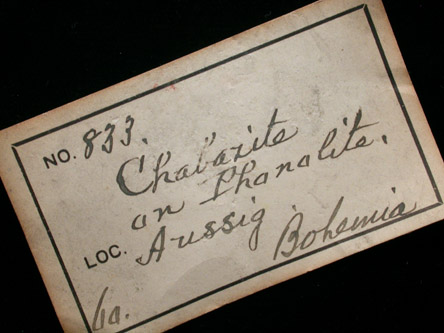 NO. 833.
Chabazite
on Phonolite.
LOC. Aussig
Bohemia
6a.